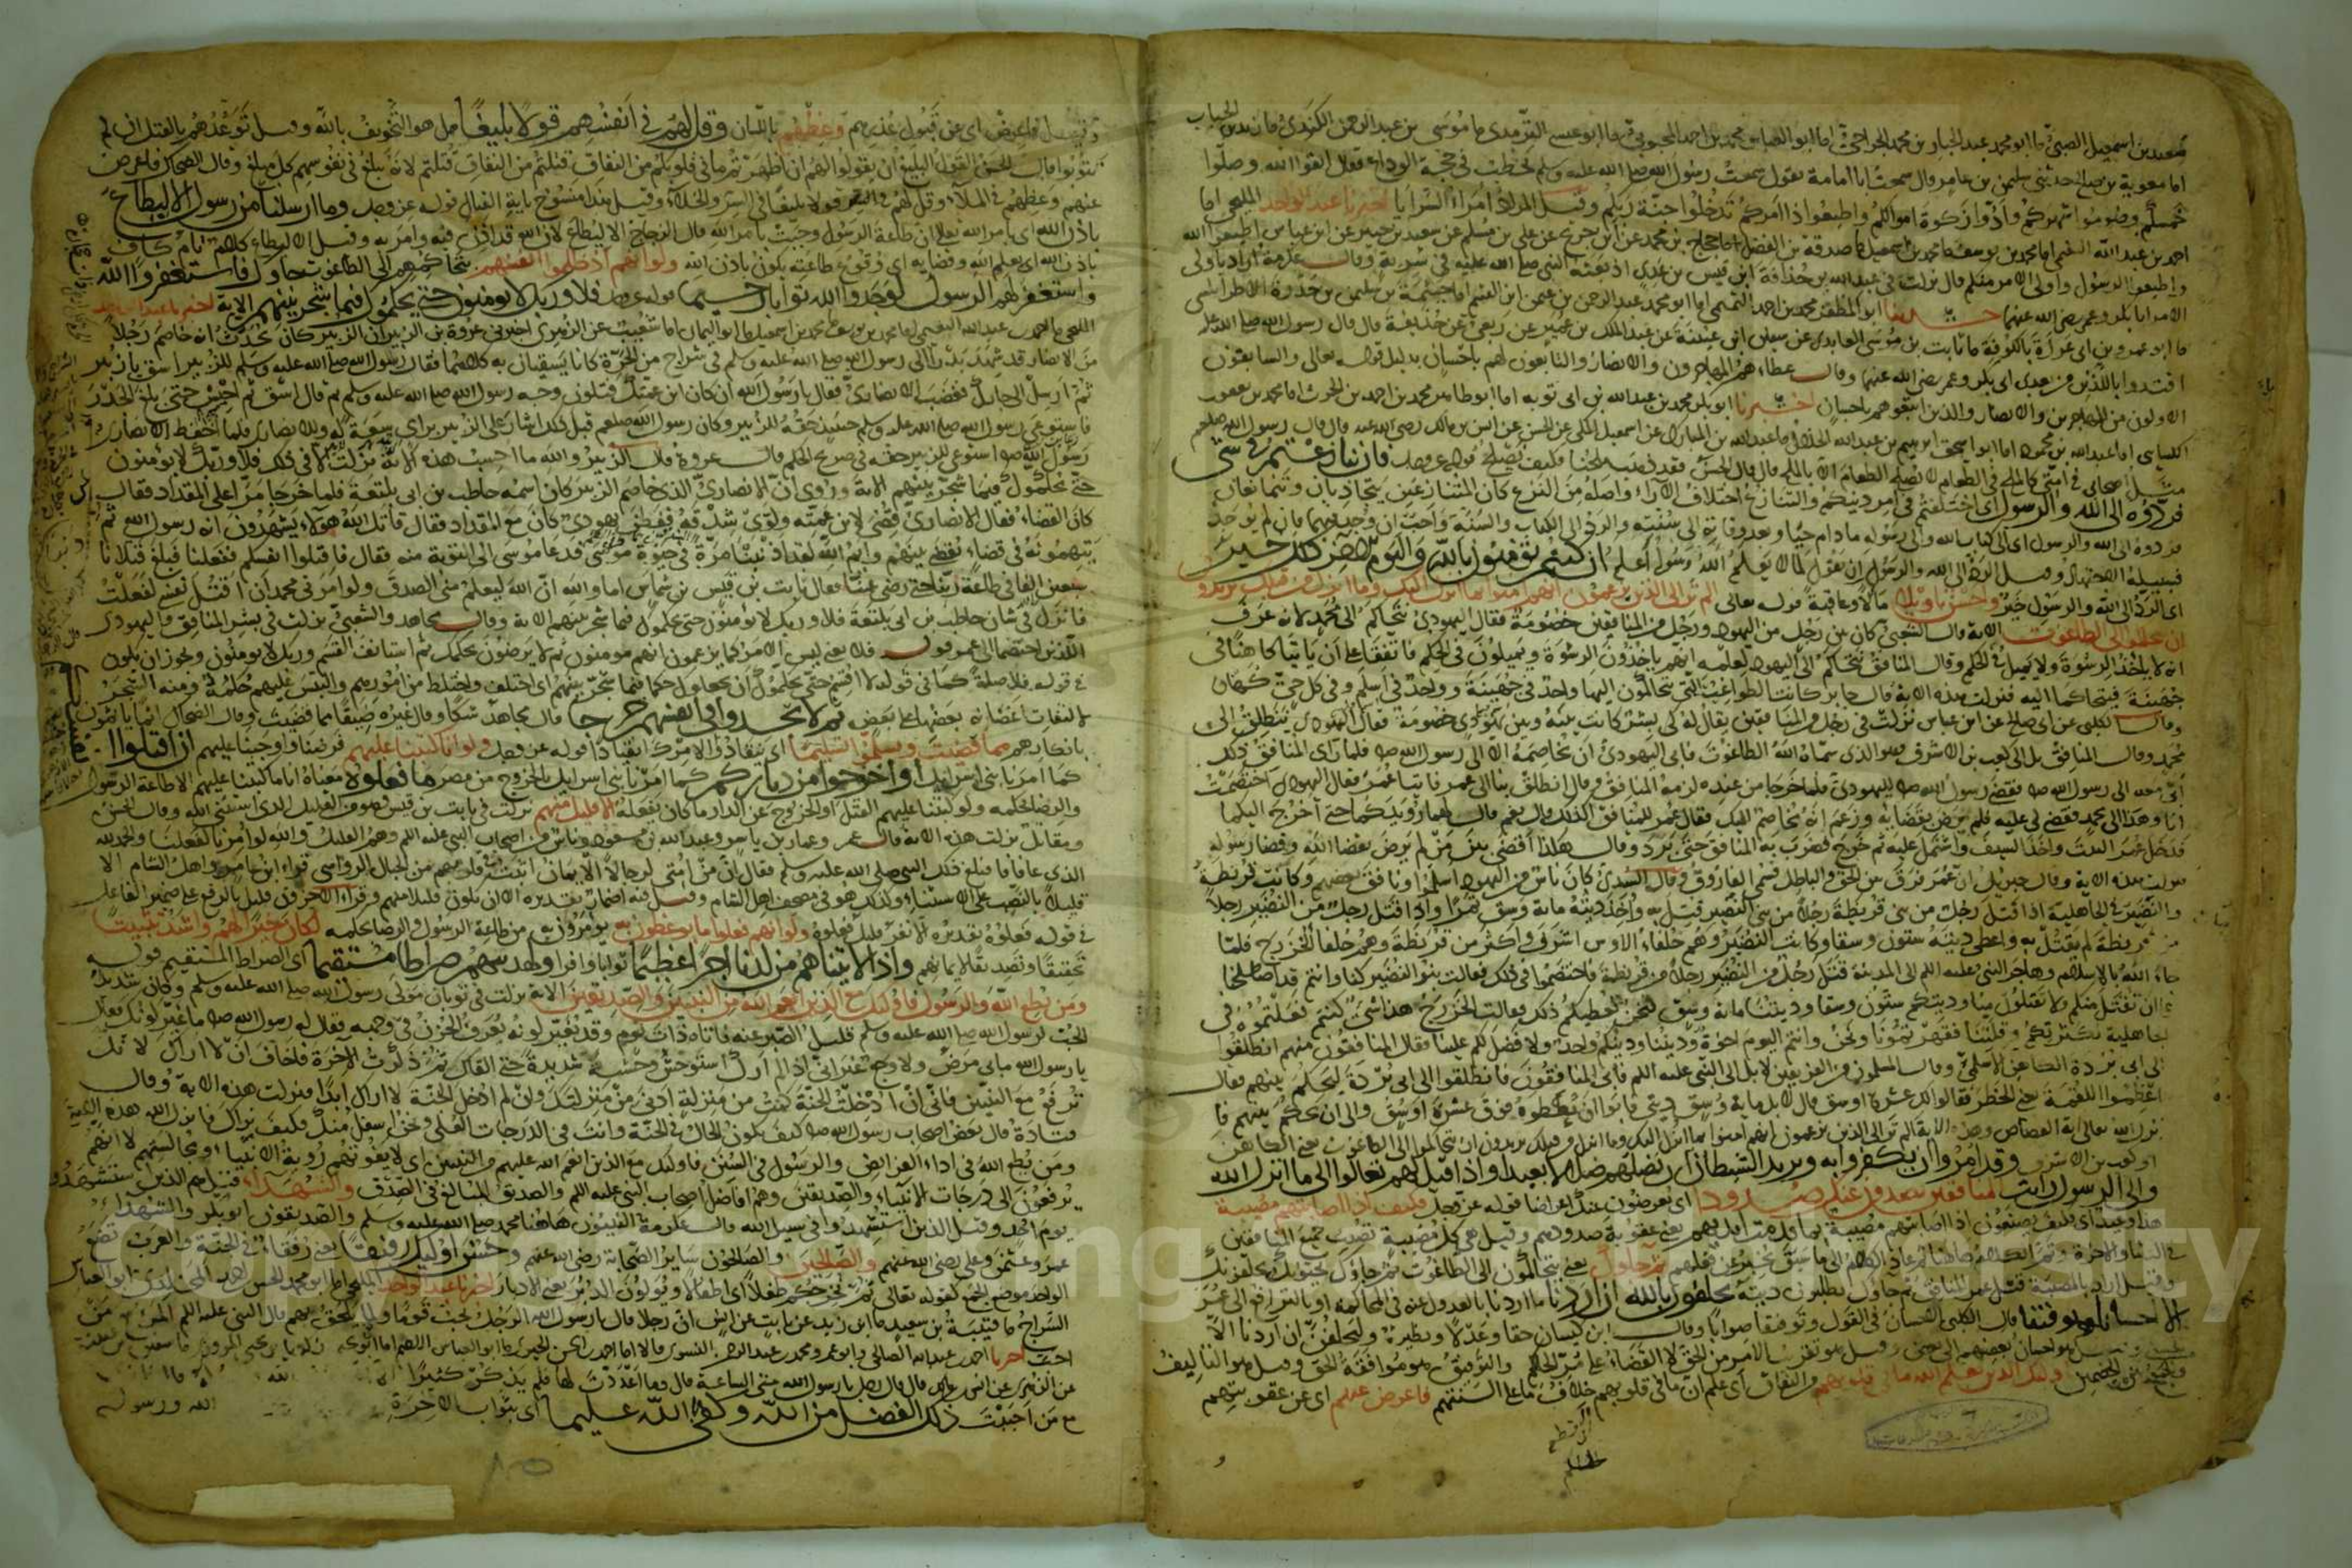 سعيد بن اسمعيل الضبي ما ابو محمد عبد الجبار بن محمد الجراحي اما ابو العباس محمد بن احمد المحبوبي ما ابو عيسى الترمذي ما موسى بن عبد الرحمن الكندي ما زيد بن الحباب
اما معوية بن صلح حدثني سليمن بن عامر قال سمعت ابا امامة يقول سمعت رسول الله صلى الله عليه وسلم يخطب في حجة الوداع فقال اتقوا الله وصلوا
خمسكم وصوموا شهركم وادوا زكوة اموالكم واطيعوا ذا امركم تدخلوا جنة ربكم وقيل المراد امراء السرايا اخبرنا عبد الواحد المليحي اما
احمد بن عبد الله النعيمي اما محمد بن يوسف ما محمد بن اسمعيل ما صدقة بن الفضل اما حجاج بن محمد عن ابن جريج عن يعلى بن مسلم عن سعيد بن جبير عن ابن عباس اطيعوا الله
واطيعوا الرسول واولى الامر منكم قال نزلت في عبد الله بن حذافة ابن قيس بن عدي اذ بعثه النبي صلى الله عليه في سرية وقال عكرمة اراد باولى
الامر ابا بكر وعمر رضي الله عنهما حدثنا ابو المظفر محمد بن احمد التميمي اما ابو محمد عبد الرحمن بن عثمن ابن القسم اما خيثمة بن سليمن بن حيدرة الاطرابلسي
ما ابو عمرو بن ابى غرزة بالكوفة ما ثابت بن موسى العابد عن سفين ابن عيينة عن عبد الملك بن عمير عن ربعي عن حذيفة قال قال رسول الله صلى الله عليه
اقتدوا باللذين من بعدي ابى بكر وعمر رضي الله عنهما وقال عطاء هم المهاجرون والانصار والتابعون لهم باحسان بدليل قوله تعالى والسابقون
الاولون من المهاجرين والانصار والذين اتبعوهم باحسان اخبرنا ابو بكر محمد بن عبد الله بن ابى توبه اما ابو طاهر محمد بن احمد بن الحرث اما محمد بن يعقوب
الكسائى اما عبد الله بن محمود اما ابو اسحق ابرهيم بن عبد الله الخلال ما عبد الله بن المبارك عن اسمعيل المكى عن الحسن عن انس بن مالك رضي الله عنه قال قال رسول الله صلعم
مثل اصحابى في امتى كالملح في الطعام لا يصلح الطعام الا بالملح قال قال الحسن فقد ذهب ملحنا فكيف نصلح قوله عز وجل فان تنازعتم في شئ
فردوه الى الله والرسول اى اختلفتم في امر دينكم والتنازع اختلاف الآراء واصله من النزع كان المتنازعين يتجاذبان ويتمانعان
فردوه الى الله والرسول اى الى كتاب الله والى رسوله ما دام حيا وبعد وفاته الى سنته والرد الى الكتاب والسنة واجب ان وجد فيهما فان لم يوجد
فسبيله الاجتهاد وقيل الرد الى الله والرسول ان يقول لما لا يعلم الله ورسوله اعلم ان كنتم تؤمنون بالله واليوم الآخر ذلك خير
اى الرد الى الله والرسول خير واحسن تاويلا مآلا وعاقبة قوله تعالى الم تر الى الذين يزعمون انهم امنوا بما انزل اليك وما انزل من قبلك يريدون
ان يتحاكموا الى الطاغوت الاية قال الشعبي كان بين رجل من اليهود ورجل من المنافقين خصومة فقال اليهودى نتحاكم الى محمد لانه عرف
انه لا ياخذ الرشوة ولا يميل في الحكم وقال المنافق نتحاكم الى اليهود لعلمه انهم ياخذون الرشوة ويميلون في الحكم فاتفقا على ان ياتيا كاهنا في
جهينة فيتحاكما اليه فنزلت هذه الاية قال جابر كانت الطواغيت التى يتحاكمون اليها واحد في جهينة وواحد في اسلم وفي كل حي كهان
وقال الكلبى عن ابى صالح عن ابن عباس نزلت في رجل من المنافقين يقال له بشر كانت بينه وبين يهودى خصومة فقال اليهودى ننطلق الى
محمد وقال المنافق بل الى كعب بن الاشرف وهو الذى سماه الله الطاغوت فابى اليهودى ان يخاصمه الا الى رسول الله صلى فلما راى المنافق ذلك
اتى معه الى رسول الله صلى فقضى رسول الله صلى لليهودى فلما خرجا من عنده لزمه المنافق وقال انطلق بنا الى عمر فاتيا عمر فقال اليهودى اختصمت
انا وهذا الى محمد فقضى لى عليه فلم يرض بقضائه وزعم انه يخاصم اليك فقال عمر للمنافق اكذلك قال نعم قال لهما رويدكما حتى اخرج اليكما
فدخل عمر البيت واخذ السيف واشتمل عليه ثم خرج فضرب به المنافق حتى برد وقال هكذا اقضى بين من لم يرض بقضاء الله وقضاء رسوله
فنزلت هذه الاية وقال جبريل ان عمر فرق بين الحق والباطل فسمى الفاروق وقال السدى كان ناس من اليهود اسلموا ونافق بعضهم وكانت قريظة
والنضير في الجاهلية اذا قتل رجل من بنى قريظة رجلا من بنى النضير قتل به واخذ ديته مائة وسق تمرا واذا قتل رجل من النضير رجلا
من قريظة لم يقتل به واعطى ديته ستون وسقا وكانت النضير وهم حلفاء الاوس اشرف واكثر من قريظة وهم حلفاء الخزرج فلما
جاء الله بالاسلام وهاجر النبي عليه السلم الى المدينة قتل رجل من النضير رجلا من قريظة فاختصموا في ذلك فقالت بنو النضير كنا وانتم قد اصطلحنا
على ان نقتل منكم ولا تقتلون منا وديتكم ستون وسقا وديتنا مائة وسق فنحن نعطيكم ذلك فقالت الخزرج هذا شئ كنتم فعلتموه في
الجاهلية لكثرتكم وقلتنا فقهرتمونا ونحن وانتم اليوم اخوة وديننا ودينكم واحد ولا فضل لكم علينا فقال المنافقون منهم انطلقوا
الى ابى بردة الكاهن الاسلمى وقال المسلمون من الفريقين لا بل الى النبى عليه السلم فابى المنافقون فانطلقوا الى ابى بردة ليحكم بينهم فقال
اعظموا اللقمة يعنى الخطر فقالوا لك عشرة اوسق قال لا بل مائة وسق ديتى فابوا ان يعطوه فوق عشرة اوسق وابى ان يحكم بينهم فا
نزل الله تعالى اية القصاص وهذه الاية الم تر الى الذين يزعمون انهم امنوا بما انزل اليك وما انزل من قبلك يريدون ان يتحاكموا الى الطاغوت يعنى الكاهن
او كعب بن الاشرف وقد امروا ان يكفروا به ويريد الشيطان ان يضلهم ضلالا بعيدا واذا قيل لهم تعالوا الى ما انزل الله
والى الرسول رايت المنافقين يصدون عنك صدودا اى يعرضون عنك اعراضا قوله عز وجل فكيف اذا اصابتهم مصيبة
هذا وعيد اى فكيف يصنعون اذا اصابتهم مصيبة بما قدمت ايديهم يعنى عقوبة صدودهم وقيل هى كل مصيبة تصيب جميع المنافقين
في الدنيا والاخرة وتم الكلام هاهنا ثم عاد الكلام الى ما سبق يخبر عن فعلهم ثم جاؤك يعنى يتحاكمون الى الطاغوت ثم جاؤك يحيونك يحلفونك
وقيل اراد بالمصيبة قتل عمر المنافق ثم جاؤك يطلبون ديته يحلفون بالله ان اردنا ما اردنا بالعدول عنه في المحاكمة او بالترافع الى عمر
الا احسانا وتوفيقا قال الكلبى الاحسان في القول وتوفيقا صوابا وقال ابن كيسان حقا وعدلا ونظيره وليحلفن ان اردنا الا
الحسنى وقيل هو احسان بعضهم الى بعض وقيل هو تقريب الامر من الحق لا القضاء على مر الحكم والتوفيق هو موافقة الحق وقيل هو التاليف
والجمع بين الخصمين اولئك الذين يعلم الله ما في قلوبهم من النفاق اى علم ان ما في قلوبهم خلاف ما على السنتهم فاعرض عنهم اى عن عقوبتهم
وقيل فاعرض اى عن قبول عذرهم وعظهم باللسان وقل لهم في انفسهم قولا بليغا قيل هو التخويف بالله وقيل توعدهم بالقتل ان لم
يتوبوا قال الحسن القول البليغ ان يقول لهم ان اظهرتم ما في قلوبكم من النفاق قتلتم من النفاق قتلتم لانه يبلغ في نفوسهم كل مبلغ وقال الضحاك فاعرض
عنهم وعظهم في الملاء وقل لهم في انفسهم قولا بليغا في السر والخلاء وقيل هذا منسوخ باية القتال قوله عز وجل وما ارسلنا من رسول الا ليطاع
باذن الله اى بامر الله تعالى لان طاعة الرسول وجبت بامر الله قال الزجاج الا ليطاع لان الله قد اذن فيه وامر به وقيل الا ليطاع كلام تام كاف
باذن الله اى بعلم الله وقضايه اى وقوع طاعته يكون باذن الله ولو انهم اذ ظلموا انفسهم بتحاكمهم الى الطاغوت جاؤك فاستغفروا الله
واستغفر لهم الرسول لوجدوا الله توابا رحيما قوله عز وجل فلا وربك لا يؤمنون حتى يحكموك فيما شجر بينهم الاية اخبرنا عبد الواحد
المليحى اما احمد بن عبد الله النعيمى اما محمد بن يوسف ما محمد بن اسمعيل ما ابو اليمان اما شعيب عن الزهرى اخبرنى عروة بن الزبير ان الزبير كان يحدث انه خاصم رجلا
من الانصار قد شهد بدرا الى رسول الله صلى الله عليه وسلم في شراج من الحرة كانا يسقيان به كلاهما فقال رسول الله صلى الله عليه وسلم للزبير اسق يا زبير
ثم ارسل الى جارك فغضب الانصارى فقال يا رسول الله ان كان ابن عمتك فتلون وجه رسول الله صلى الله عليه وسلم ثم قال اسق ثم احبس حتى يبلغ الجدر
فاستوعى رسول الله صلى الله عليه وسلم حينئذ حقه للزبير وكان رسول الله صلعم قبل ذلك اشار على الزبير براى سعة له وللانصارى فلما احفظ الانصارى
رسول الله صلى استوعى للزبير حقه في صريح الحكم قال عروة قال الزبير والله ما احسب هذه الاية نزلت الا في ذلك فلا وربك لا يؤمنون
حتى يحكموك فيما شجر بينهم الاية وروى ان الانصارى الذى خاصم الزبير كان اسمه حاطب بن ابى بلتعة فلما خرجا مرا على المقداد فقال لمن
كان القضاء فقال الانصارى قضى لابن عمته ولوى شدقه ففطن يهودى كان مع المقداد فقال قاتل الله هولاء يشهدون انه رسول الله ثم
يتهمونه في قضاء يقضى بينهم وايم الله لقد اذنبنا مرة في حيوة موسى فدعا موسى الى التوبة منه فقال فاقتلوا انفسكم ففعلنا فبلغ قتلانا
سبعين الفا في طاعة ربنا حتى رضى عنا فقال ثابت بن قيس بن شماس اما والله ان الله ليعلم منى الصدق ولو امرنى محمد ان اقتل نفسى لفعلت
فانزل في شان حاطب بن ابى بلتعة فلا وربك لا يؤمنون حتى يحكموك فيما شجر بينهم الاية وقال مجاهد والشعبى نزلت في بشر المنافق واليهودى
الذين اختصما الى عمر قوله فلا يعنى ليس الامر كما يزعمون انهم مومنون ثم لا يرضون بحكمك ثم استانف القسم وربك لا يومنون ويجوز ان يكون
في قوله فلا صلة كما في قوله لا اقسم حتى يحكموك ان يجعلوك حكما فيما شجر بينهم اى اختلف واختلط من امورهم والتبس عليهم حكمه ومنه الشجر
لالتفات اغصانه بعضها على بعض ثم لا يجدوا في انفسهم حرجا قال مجاهد شكا وقال غيره ضيقا مما قضيت وقال الضحاك اثما ياثمون
بانكارهم مما قضيت ويسلموا تسليما اى ينقادوا لامرك انقيادا قوله عز وجل ولو انا كتبنا عليهم فرضنا واوجبنا عليهم ان اقتلوا انفسكم
كما امرنا بنى اسرائيل او اخرجوا من دياركم كما امرنا بنى اسرايل بالخروج من مصر ما فعلوه معناه انا ما كتبنا عليهم الا طاعة الرسول
والرضا بحكمه ولو كتبنا عليهم القتل او الخروج عن الدار ما كان يفعله الا قليل منهم نزلت في ثابت بن قيس وهو من القليل الذى استثنى الله وقال الحسن
ومقاتل نزلت هذه الاية قال عمر وعمار بن ياسر وعبد الله بن مسعود وناس من اصحاب النبى عليه السلم وهم القليل والله لو امرنا لفعلنا والحمد لله
الذى عافانا فبلغ ذلك النبى صلى الله عليه وسلم فقال ان من امتى لرجالا الايمان اثبت في قلوبهم من الجبال الرواسى قراء ابن عامر واهل الشام الا
قليلا بالنصب على الاستثناء وكذلك هو في مصحف اهل الشام وقيل فيه اضمار تقديره الا ان يكون قليلا منهم وقراء الآخرون قليل بالرفع على ضمير الفاعل
في قوله فعلوه تقديره الا نفر قليل فعلوه ولو انهم فعلوا ما يوعظون به يؤمرون به من طاعة الرسول والرضا بحكمه لكان خيرا لهم واشد تثبيتا
تحقيقا وتصديقا لايمانهم واذا لآتيناهم من لدنا اجرا عظيما ثوابا وافرا ولهديناهم صراطا مستقيما اى الصراط المستقيم قوله
ومن يطع الله والرسول فاولئك مع الذين انعم الله عليهم من النبيين والصديقين الاية نزلت في ثوبان مولى رسول الله صلى الله عليه وسلم وكان شديد
الحب لرسول الله صلى الله عليه وسلم قليل الصبر عنه فاتاه ذات يوم وقد تغير لونه يعرف الحزن في وجهه فقال له رسول الله صلى ما غير لونك فقال
يا رسول الله ما بى مرض ولا وجع غير انى اذا لم ارك استوحشت وحشة شديدة حتى القاك ثم ذكرت الآخرة فاخاف ان لا اراك لانك
ترفع مع النبيين فانى ان ادخلت الجنة كنت في منزلة ادنى من منزلتك وان لم ادخل الجنة لا اراك ابدا فنزلت هذه الاية وقال
قتادة قال بعض اصحاب رسول الله صلى كيف يكون الحال في الجنة وانت في الدرجات العلى ونحن اسفل منك فكيف نراك فانزل الله هذه الاية
ومن يطع الله في اداء الفرائض والرسول في السنن فاولئك مع الذين انعم الله عليهم من النبيين اى لا يفوتهم رؤية الانبياء ومجالستهم لا انهم
يرفعون الى درجات الانبياء والصديقين وهم افاضل اصحاب النبى عليه السلم والصديق المبالغ في الصدق والشهداء قيل هم الذين استشهدوا
يوم احد وقيل الذين استشهدوا في سبيل الله وقال عكرمة النبيون هاهنا محمد صلى الله عليه وسلم والصديقون ابو بكر والشهداء
عمر وعثمن وعلى رضى الله عنهم والصالحين والصالحون ساير الصحابة رضى الله عنهم وحسن اولئك رفيقا يعنى رفقاء في الجنة والعرب تضع
الواحد موضع الجمع كقوله تعالى ثم نخرجكم طفلا اى اطفالا ويولون الدبر يعنى الادبار اخبرنا عبد الواحد المليحى اما ابو محمد الحسن بن احمد المخلدى اما ابو العباس
السراج ما قتيبة بن سعيد ما حماد بن زيد عن ثابت عن انس ان رجلا قال يا رسول الله الرجل يحب قوما ولما يلحق بهم قال النبى عليه السلم المرء مع من
احب اخبرنا احمد بن عبد الله الصالحى
عن الزهرى عن انس بن مالك قال قال رجل يا رسول الله متى الساعة قال وما اعددت لها فلم يذكر كثيرا
مع من احببت ذلك الفضل من الله وكفى بالله عليما اى بثواب الآخرة
الله ورسوله